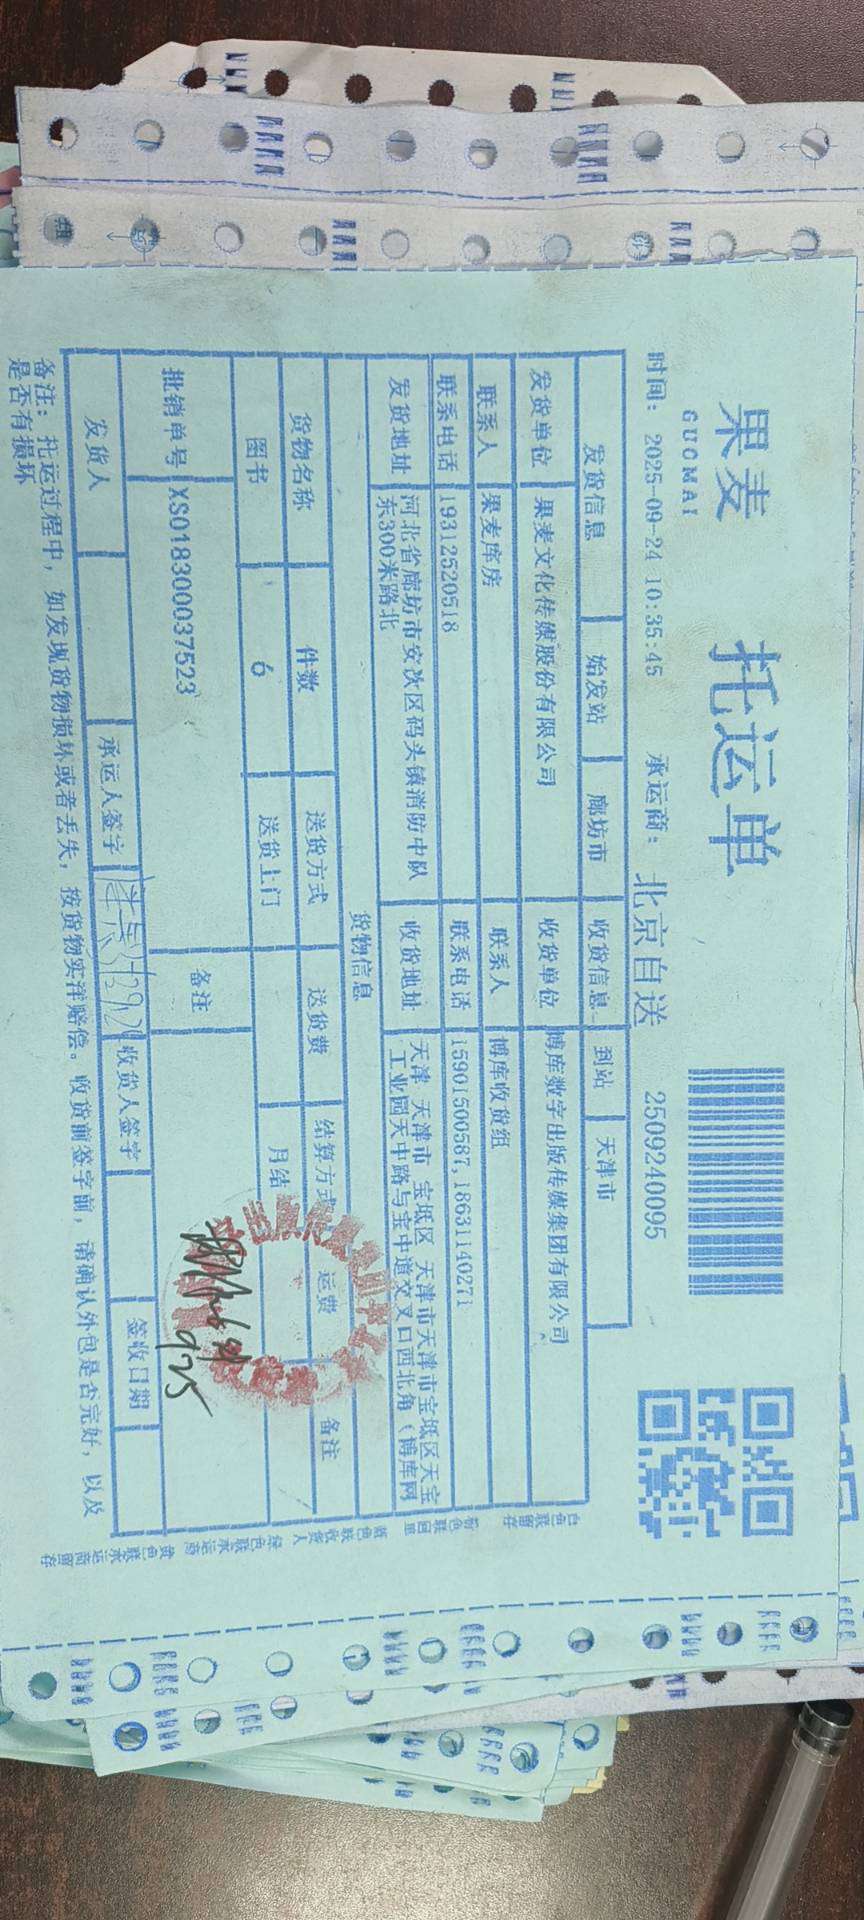 果麦
GUOMAI
托运单
时间: 2025-09-24 10:35:45 承运商: 北京自送 2509240095
发货信息 始发站 廊坊市 收货信息 到站 天津市
发货单位 果麦文化传媒股份有限公司 收货单位 博库数字出版传媒集团有限公司
联系人 果麦库房 联系人 博库收货组
联系电话 19312520518 联系电话 15901500587,18631140271
发货地址 河北省廊坊市安次区码头镇消防中队东300米路北 收货地址 天津 天津市 宝坻区 天津市天津市宝坻区天宝工业园天中路与宝中道交叉口西北角（博库网
货物信息
货物名称 件数 送货方式 送货费 结算方式 运费 备注
图书 6 送货上门 月结
批销单号 XS018300037523 备注
9.25
发货人 承运人签字 收货人签字 签收日期
备注: 托运过程中, 如发现货物损坏或者丢失, 按货物实洋赔偿。收货前签字前, 请确认外包是否完好, 以及
是否有损坏